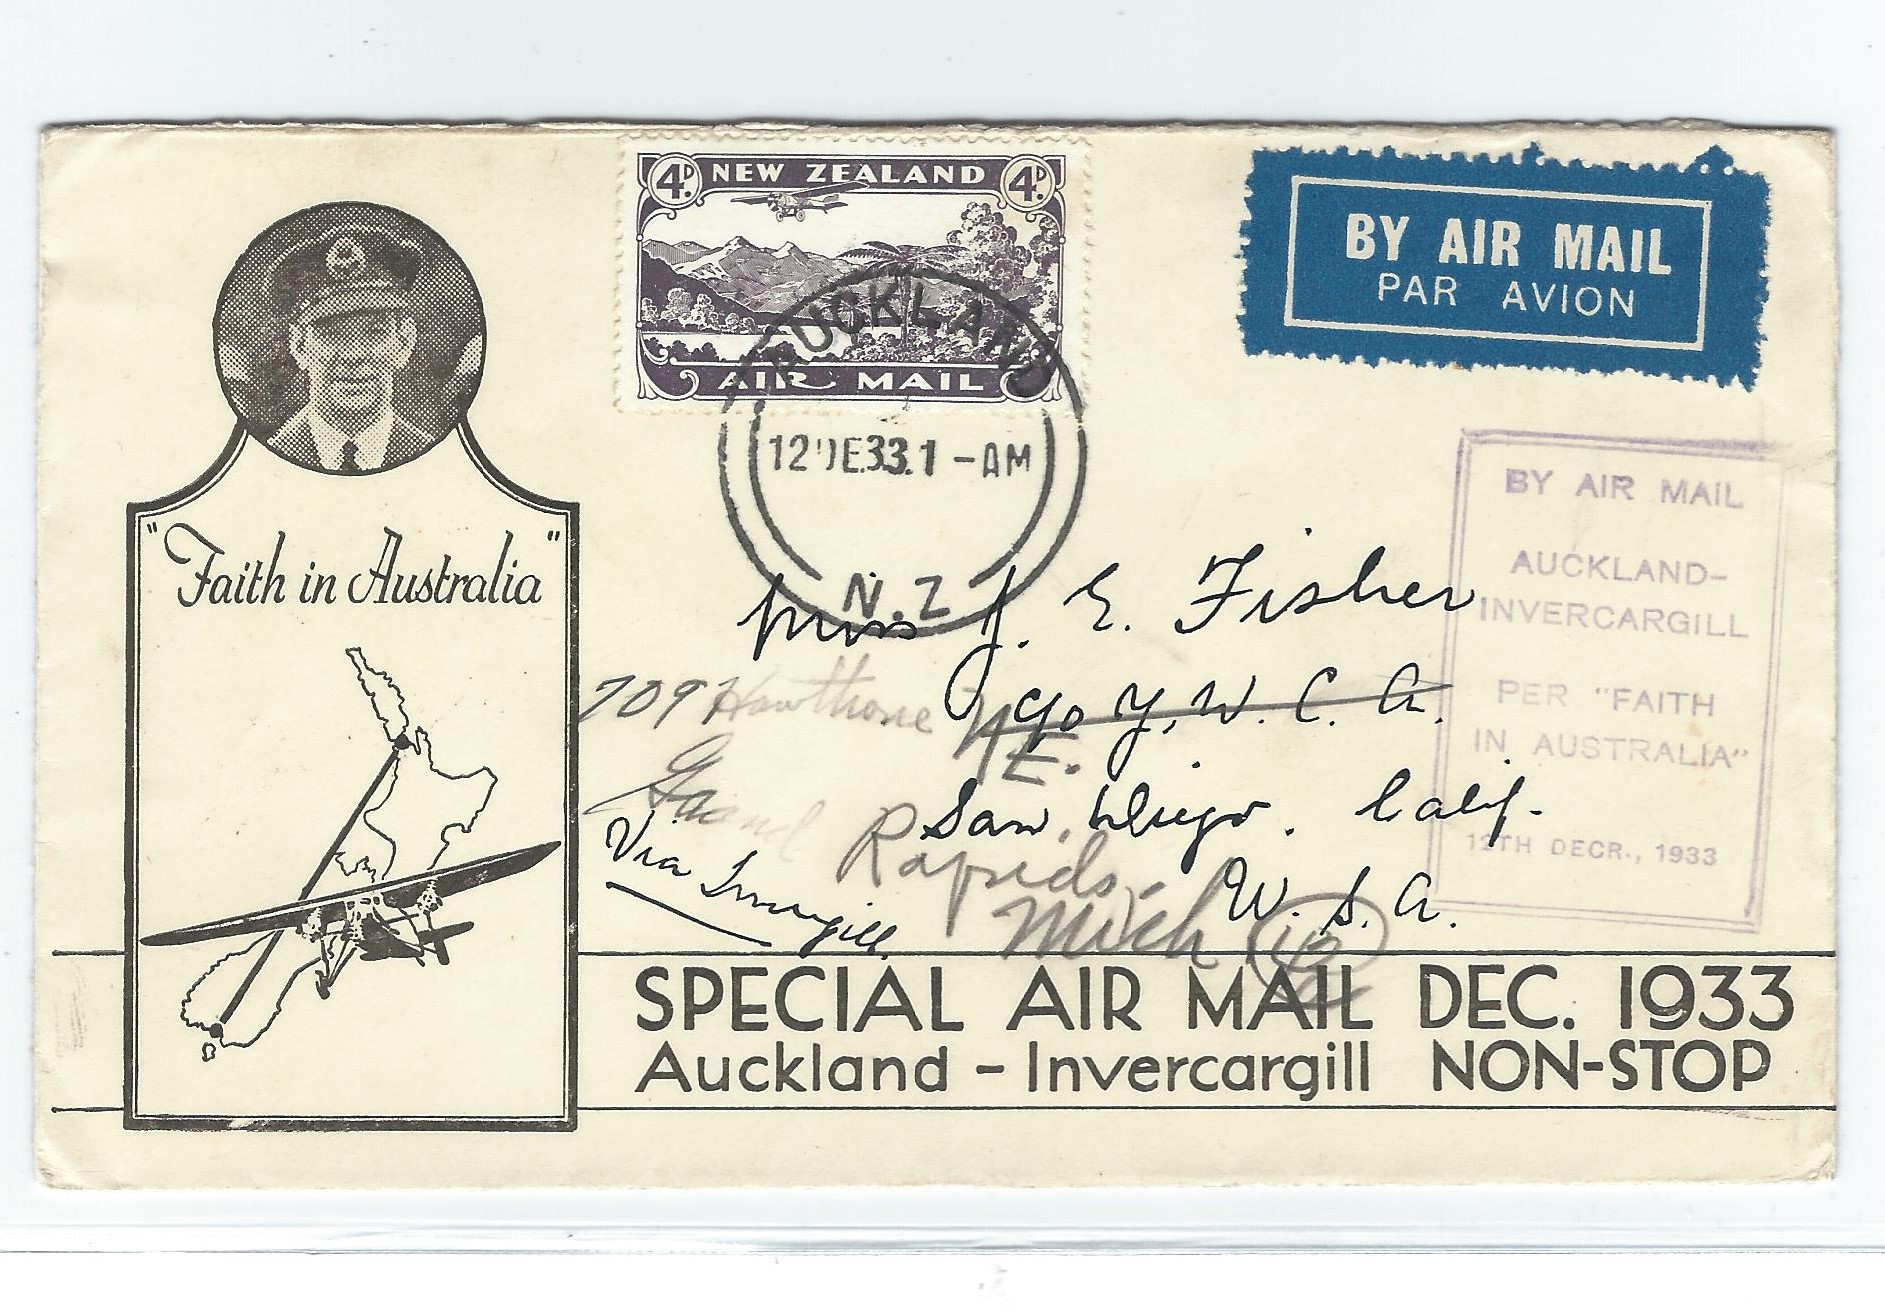 4D. NEW ZEALAND 4D.
AIR MAIL
BY AIR MAIL
PAR AVION
AUCKLAND
12 DE33.1-AM
N.Z
BY AIR MAIL
AUCKLAND-
INVERCARGILL
PER "FAITH
IN AUSTRALIA"
12TH DECR., 1933
"Faith in Australia"
Miss J. E. Fisher
c/o Y. W. C. A.
San Diego. Calif.
U. S. A.
Hawthorne
N E.
Grand Rapids.
Mich
Via Invercargill
SPECIAL AIR MAIL DEC. 1933
Auckland - Invercargill NON-STOP